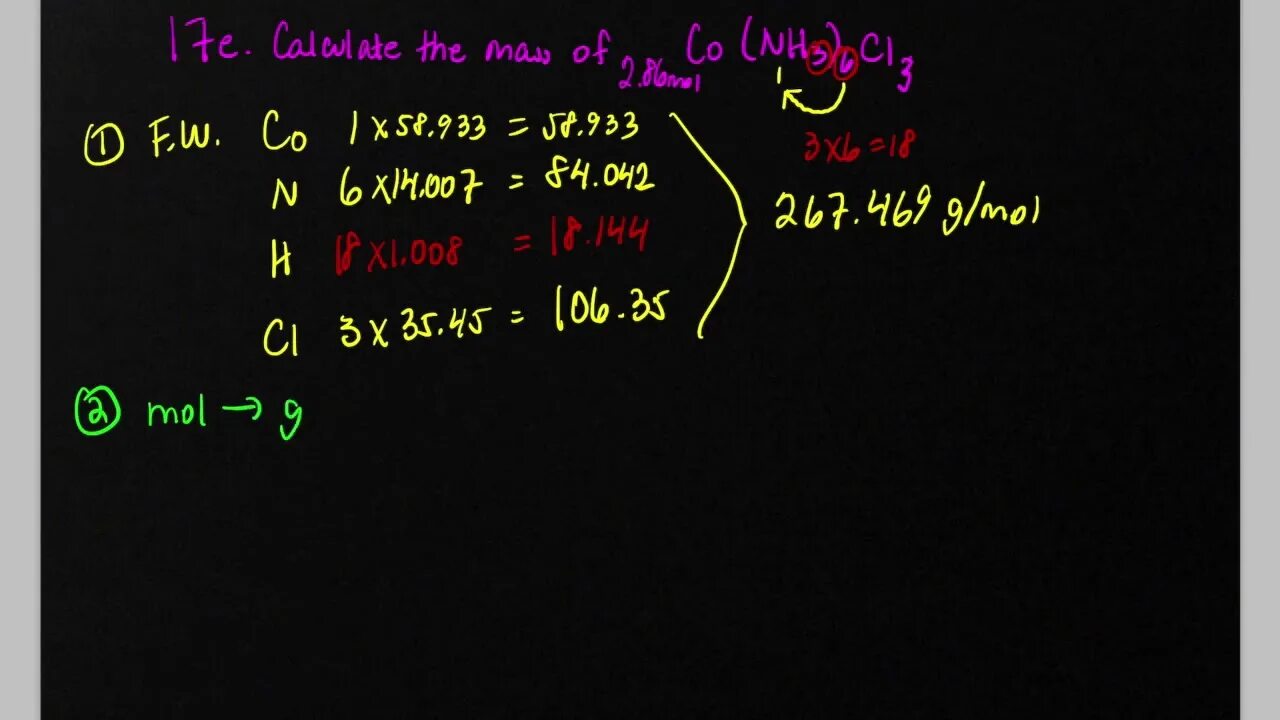 17e. Calculate the mass of 2.86mol Co(NH3)6Cl3
1
3x6=18
① F.W. Co 1x58.933 = 58.933
N 6x14.007 = 84.042
H 18x1.008 = 18.144
Cl 3x35.45 = 106.35
267.469 g/mol
② mol → g